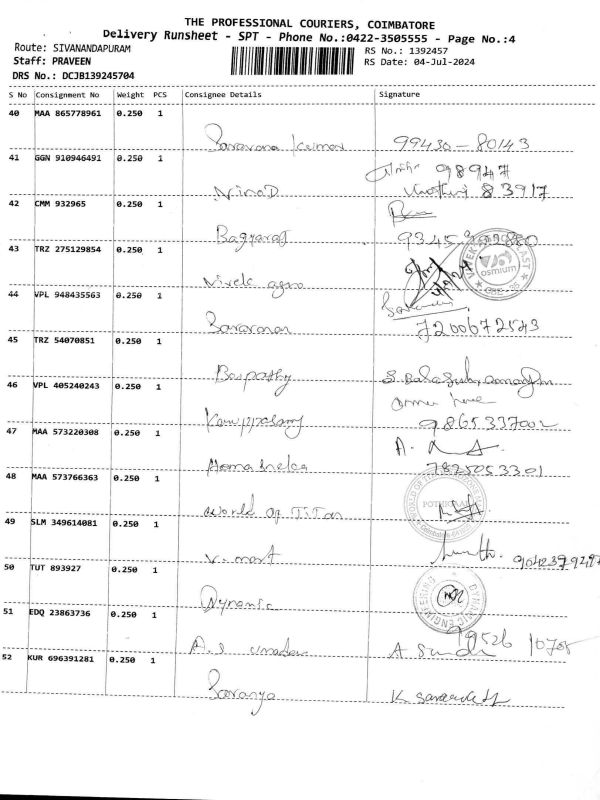 THE PROFESSIONAL COURIERS, COIMBATORE
Delivery Runsheet - SPT - Phone No.:0422-3505555 - Page No.:4
Route: SIVANANDAPURAM
RS No.: 1392457
Staff: PRAVEEN
RS Date: 04-Jul-2024
DRS No.: DCJB139245704
S No Consignment No Weight PCS Consignee Details Signature
40 MAA 865778961 0.250 1
Saravana Kumar 99430-80143
41 GGN 910946491 0.250 1
98947
Vinod 83917
42 CMM 932965 0.250 1
Bagyaraj 9345
43 TRZ 275129854 0.250 1
osmium
Vivek agro
44 VPL 948435563 0.250 1
Saravanan 7200672543
45 TRZ 54070851 0.250 1
46 VPL 405240243 0.250 1
Karuppasamy 9865337002
47 MAA 573220308 0.250 1
7825053301
48 MAA 573766363 0.250 1
World of Titan
49 SLM 349614081 0.250 1
V-mart
50 TUT 893927 0.250 1
DYNAMIC ENGINEERING
Dynamic
51 EDQ 23863736 0.250 1
A.S
52 KUR 696391281 0.250 1
Saranya